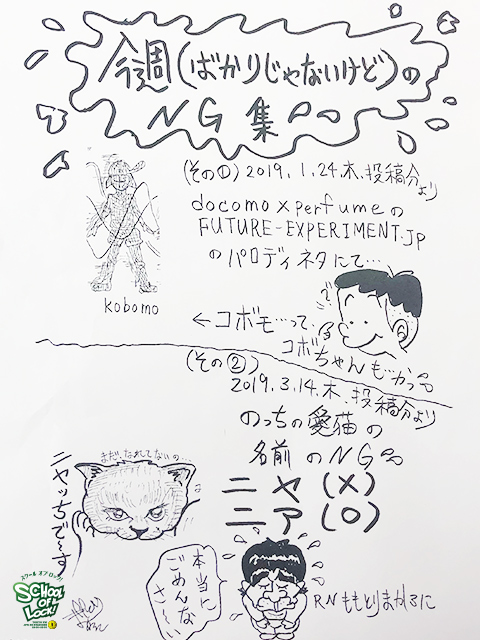 今週(ばかりじゃないけど)の
NG集
(その①)2019.1.24.木.投稿分より
docomo×perfumeの
FUTURE-EXPERIMENT.JP
のパロディネタにて…
kobomo
←コボモ…って、
コボちゃんもかっ
(その②)
2019.3.14.木.投稿分より
のっちの愛猫の
名前のNG
まだ、なれてないの…
ニャッちで〜す
ニャ(×)
ニア(○)
本当に
ごめんな
さ〜い
RNももとりまかろに
スクール オブ ロック!
SCHOOL
OF
LOCK!